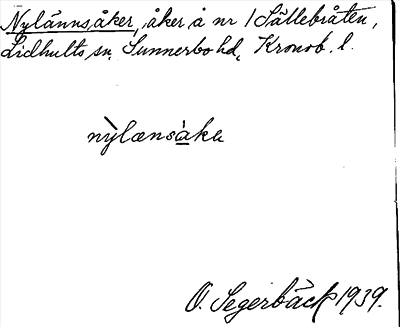 Nylännsåker, åker å nr 1 Sällebråten,
Lidhults sn, Sunnerbo hd, Kronob. l.
nỳlænsàkɐ
O. Segerbäck 1939.